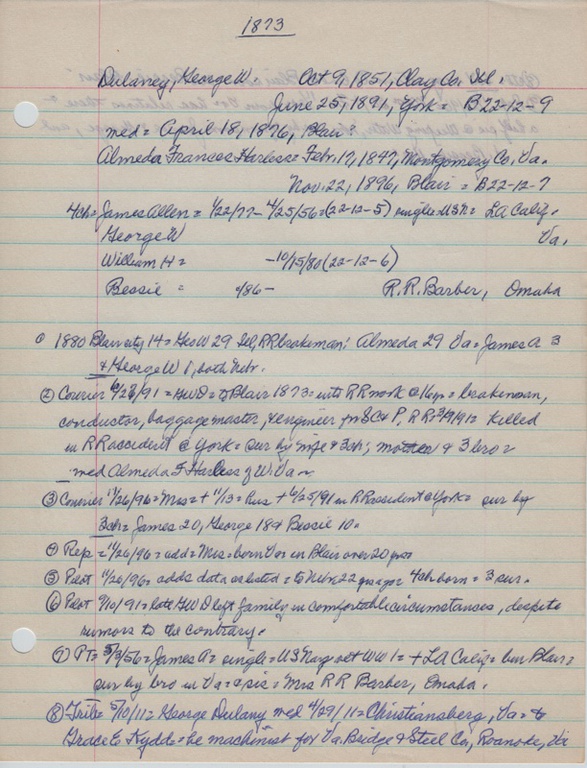 1873
Dulaney, George W. Oct 9, 1851, Clay Co, Ill.
June 25, 1891, York = B22-12-9
med = April 18, 1876, Blair
Almeda Frances Harless = Febr. 17, 1847, Montgomery Co, Va.
Nov. 22, 1896, Blair = B22-12-7
4ch = James Allen = 1/22/77 - 4/25/56 = (22-12-5) single = USN = LA Calif.
George W Va.
William H = -10/15/80 (22-12-6)
Bessie = /86 - R.R. Barber, Omaha
① 1880 Blair city 14 = Geo W 29 Ill, RR brakeman; Almeda 29 Va = James A 3
& George W 1, both Nebr.
② Courier 6/28/91 = GWD = to Blair 1873 = into RR work @ 16 yrs = brakeman,
conductor, baggage master, & engineer for SC & P, RR = killed
in RR accident @ York = sur by wife & 3ch; mother & 3 bro =
med Almeda F Harless of W. Va
③ Courier 11/26/96 = Mrs = + 11/13 = hus + 6/25/91 in RR accident @ York = sur by
3ch = James 20, George 18 & Bessie 10.
④ Rep = 11/26/96 = add = Mrs = born Va = in Blair over 20 yrs
⑤ Pilot 11/26/96 = adds data as listed = to Nebr 22 yrs ago = 4ch born = 3 sur.
⑥ Pilot 9/10/91 = late GWD left family in comfortable circumstances, despite
rumors to the contrary.
⑦ PT = 5/3/56 = James A = single = US Navy vet WW 1 = + LA Calif = bur Blair =
sur by bro in Va = a sis = Mrs R R Barber, Omaha.
⑧ Trib = 5/10/11 = George Dulany med 4/29/11 = Christiansberg, Va = to
Grace E Kydd = he machinist for Va. Bridge & Steel Co, Roanoke, Va